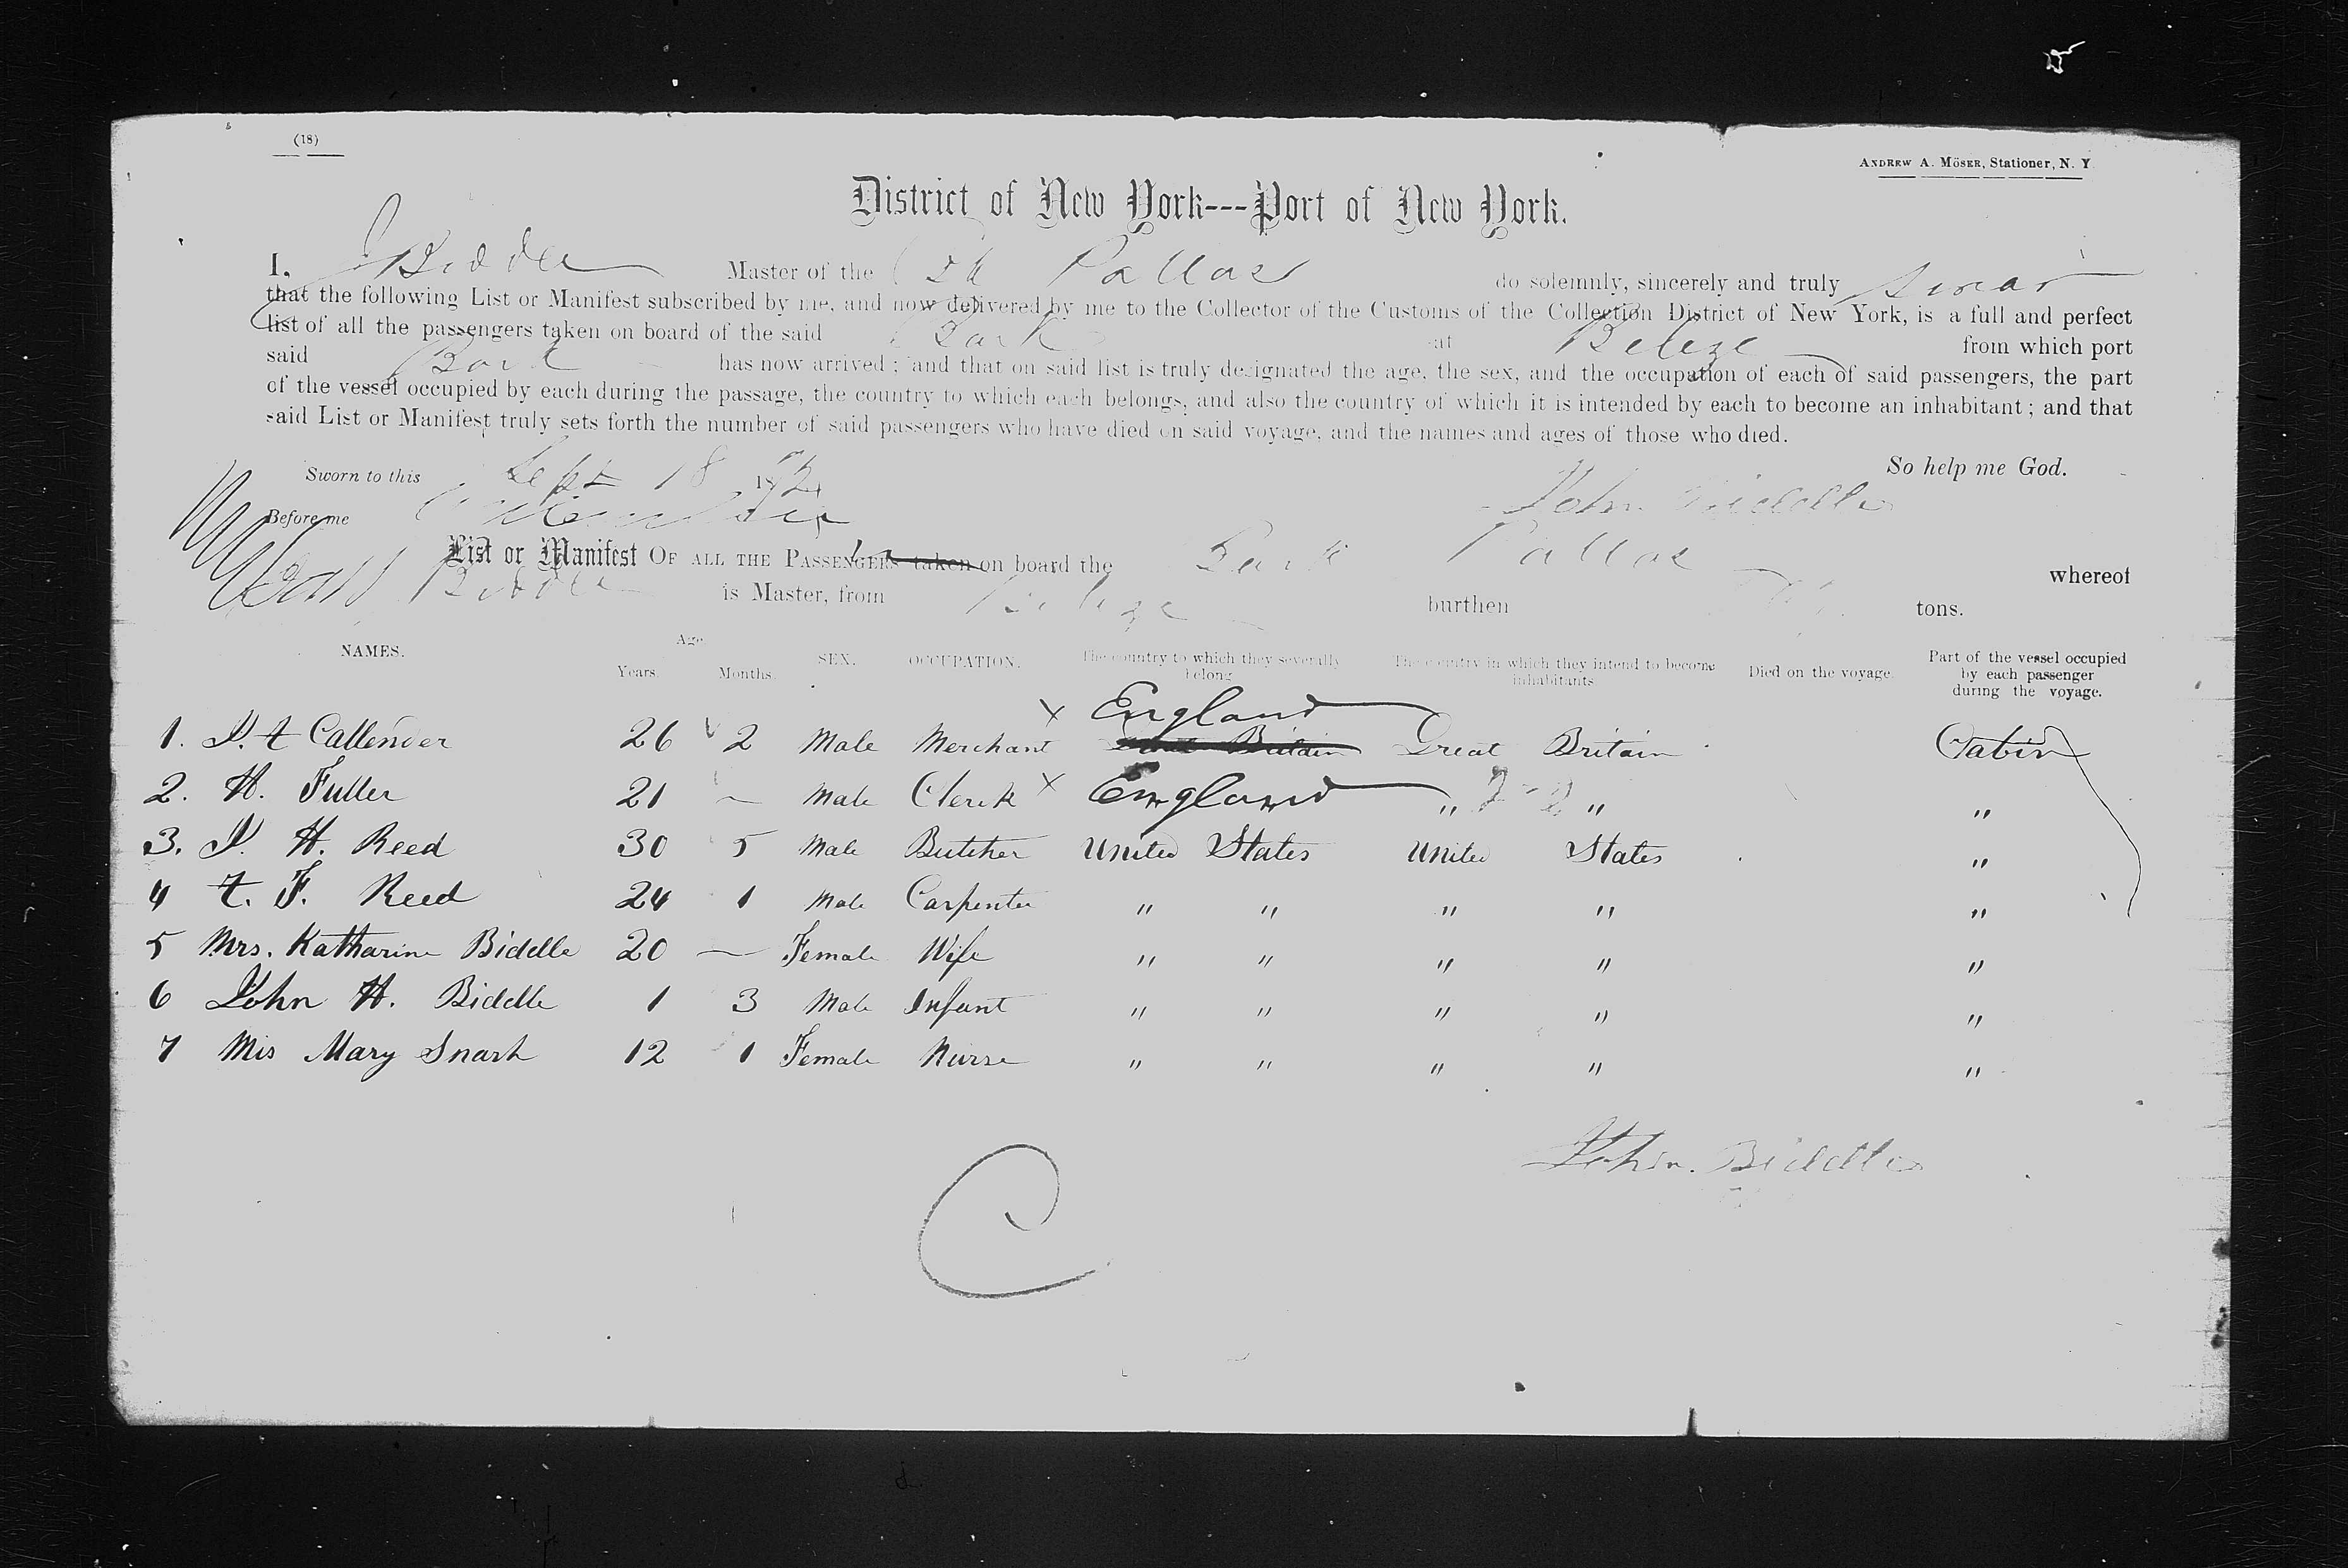 (18)
ANDREW A. MÖSER, Stationer, N. Y.
District of New York---Port of New York.
I, J Biddle Master of the Pallas do solemnly, sincerely and truly swear
that the following List or Manifest subscribed by me, and now delivered by me to the Collector of the Customs of the Collection District of New York, is a full and perfect
list of all the passengers taken on board of the said Bark at Belize from which port
said Bark has now arrived; and that on said list is truly designated the age, the sex, and the occupation of each of said passengers, the part
of the vessel occupied by each during the passage, the country to which each belongs, and also the country of which it is intended by each to become an inhabitant; and that
said List or Manifest truly sets forth the number of said passengers who have died on said voyage, and the names and ages of those who died.
So help me God.
Sworn to this Sept 18 1872
John Biddle
Before me
List or Manifest OF ALL THE PASSENGERS taken on board the Bark Pallas whereof
Biddle is Master, from Belize burthen tons.
NAMES. Age. Years. Months. SEX. OCCUPATION. The country to which they severally belong The country in which they intend to become inhabitants. Died on the voyage. Part of the vessel occupied by each passenger during the voyage.
England
1. J. t Callender 26 2 Male Merchant x Great Britain Great Britain Cabin
2. H. Fuller 21 — Male Clerk x England " " "
3. J. H. Reed 30 5 Male Butcher United States United States "
4 t. F. Reed 24 1 Male Carpenter " " " " "
5 Mrs. Katharine Biddle 20 — Female Wife " " " " "
6 John H. Biddle 1 3 Male Infant " " " " "
7 Mis Mary Snark 12 1 Female Nurse " " " " "
John. Biddle
C